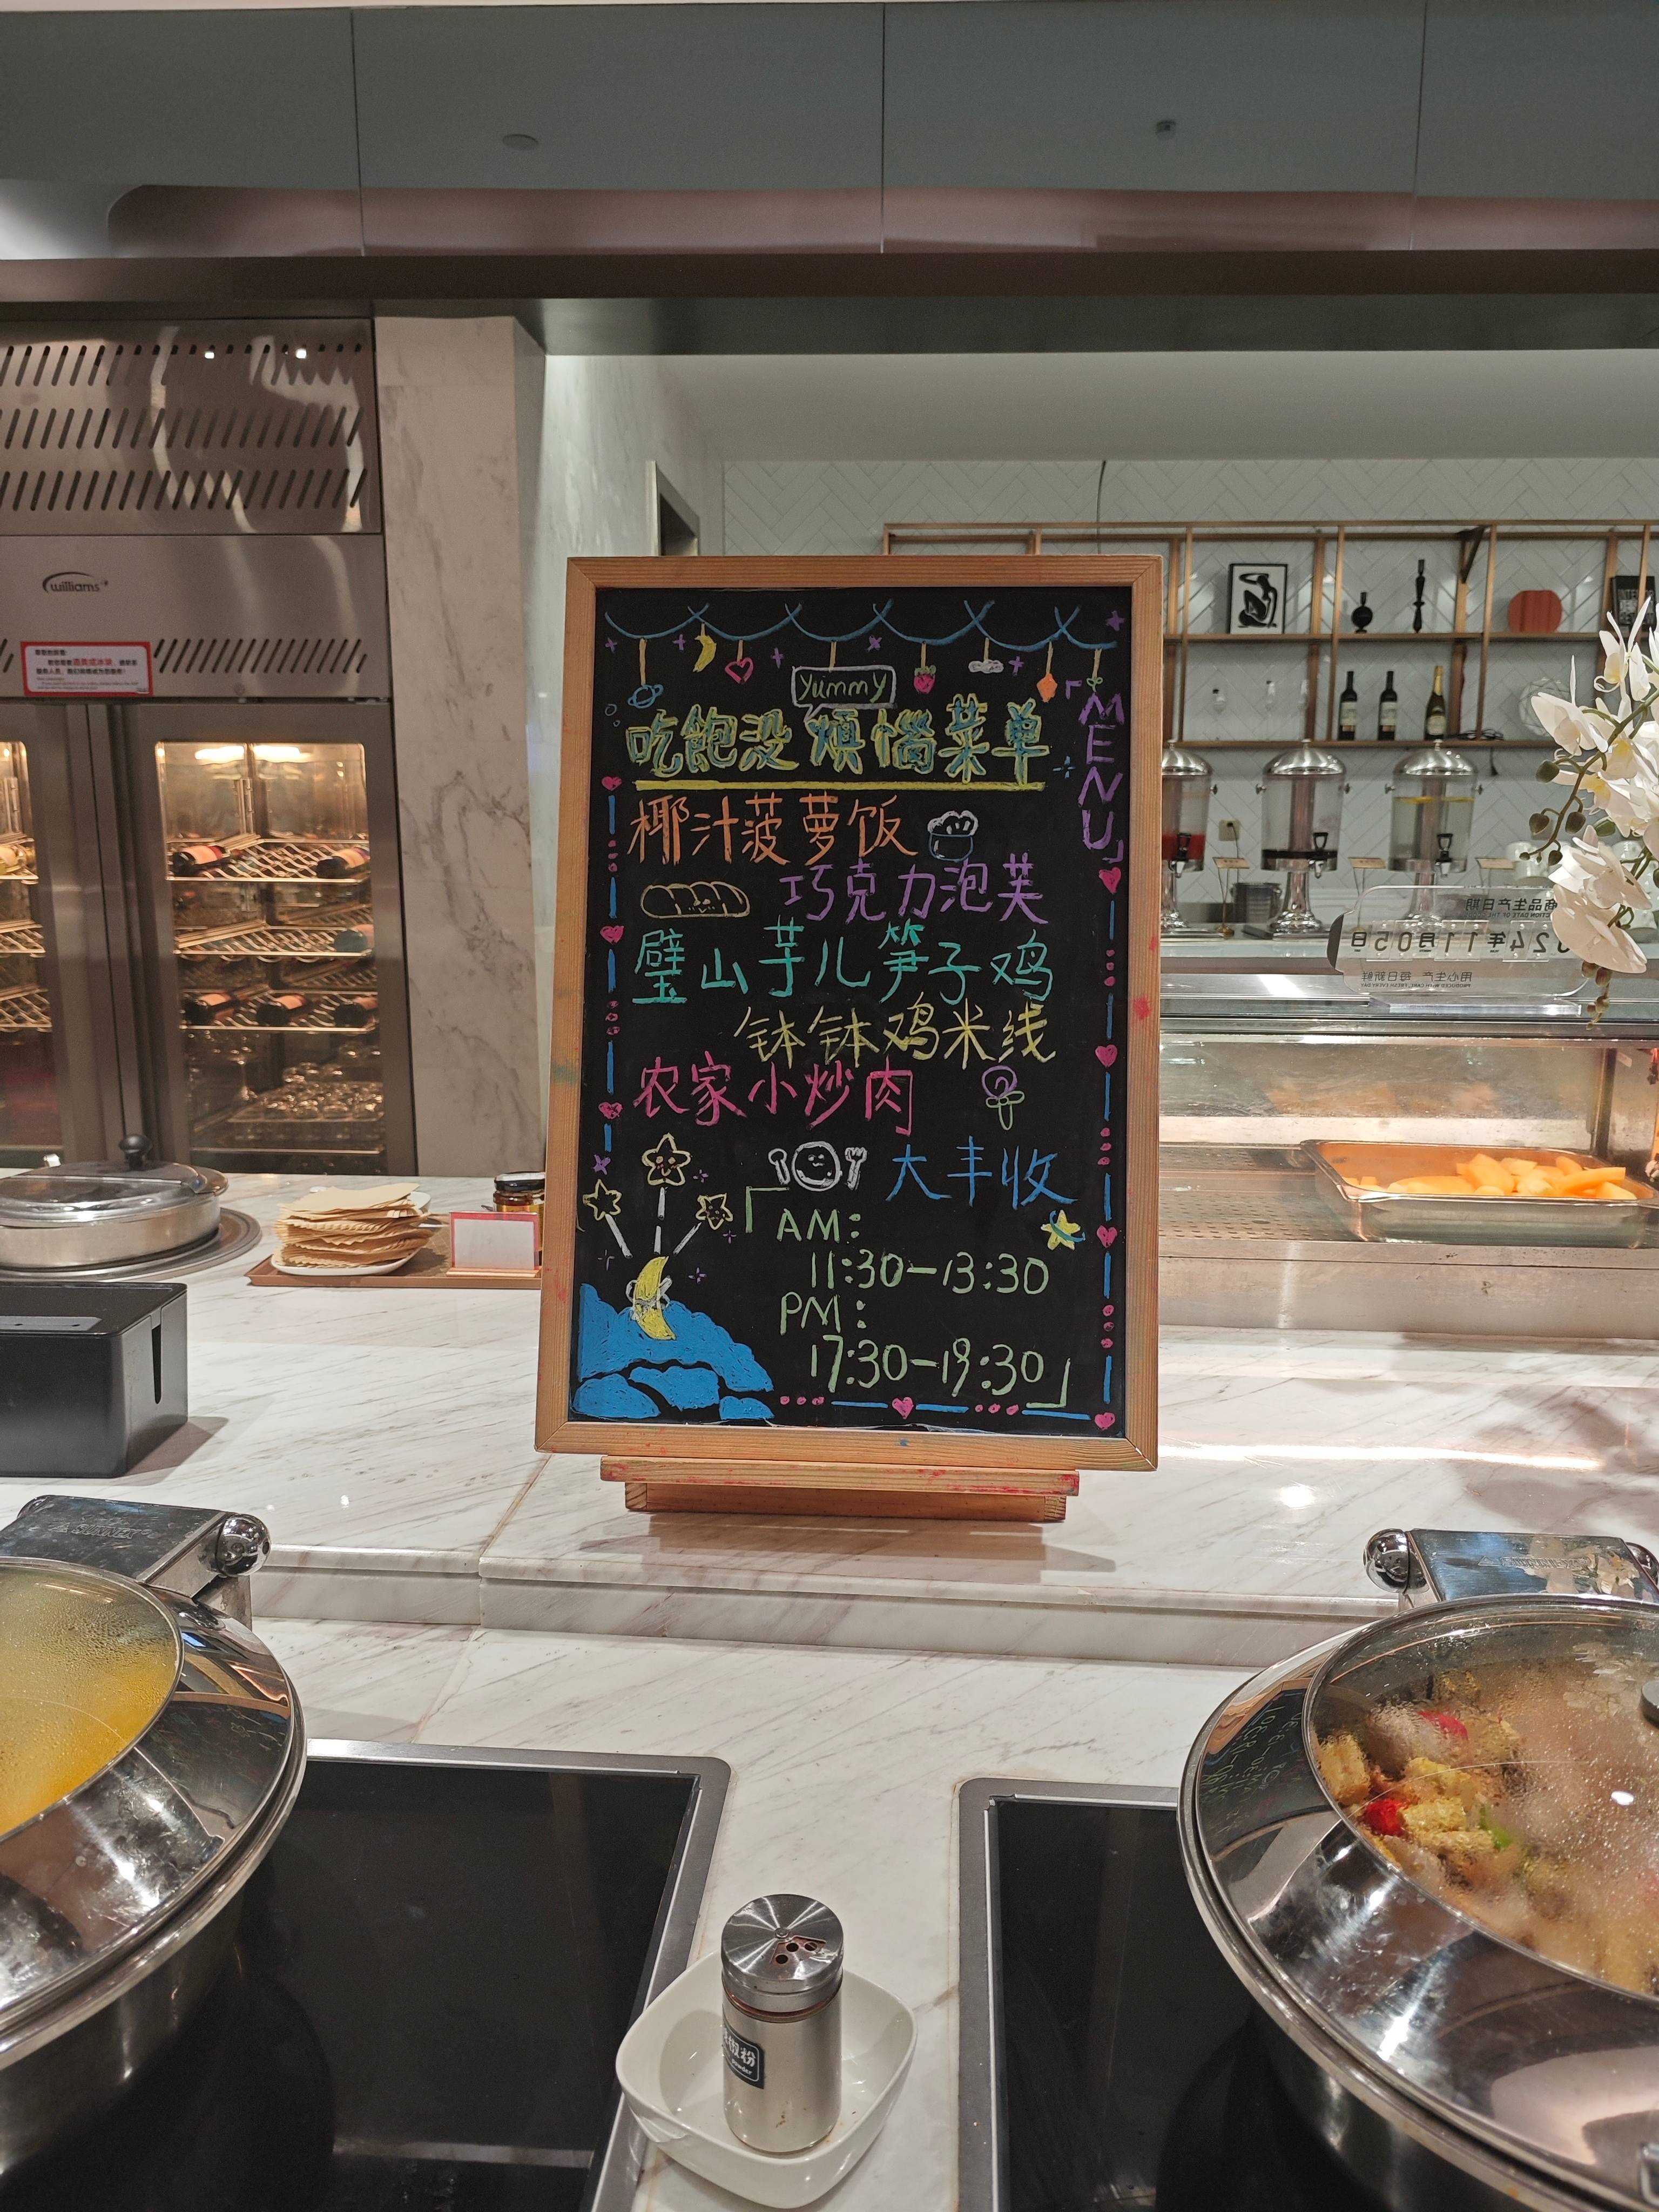 williams
尊贵的宾客:
yummy
吃飽没煩惱菜单
「MENU」
椰汁菠萝饭
巧克力泡芙
璧山芋儿笋子鸡
钵钵鸡米线
农家小炒肉
大丰收
「AM:
11:30-13:30
PM:
17:30-19:30」
商品生产日期
24年11月05日
用心生产 每日新鲜
PRODUCED WITH CARE, FRESH EVERY DAY
SUNNEX
SUNNEX
椒粉
powder